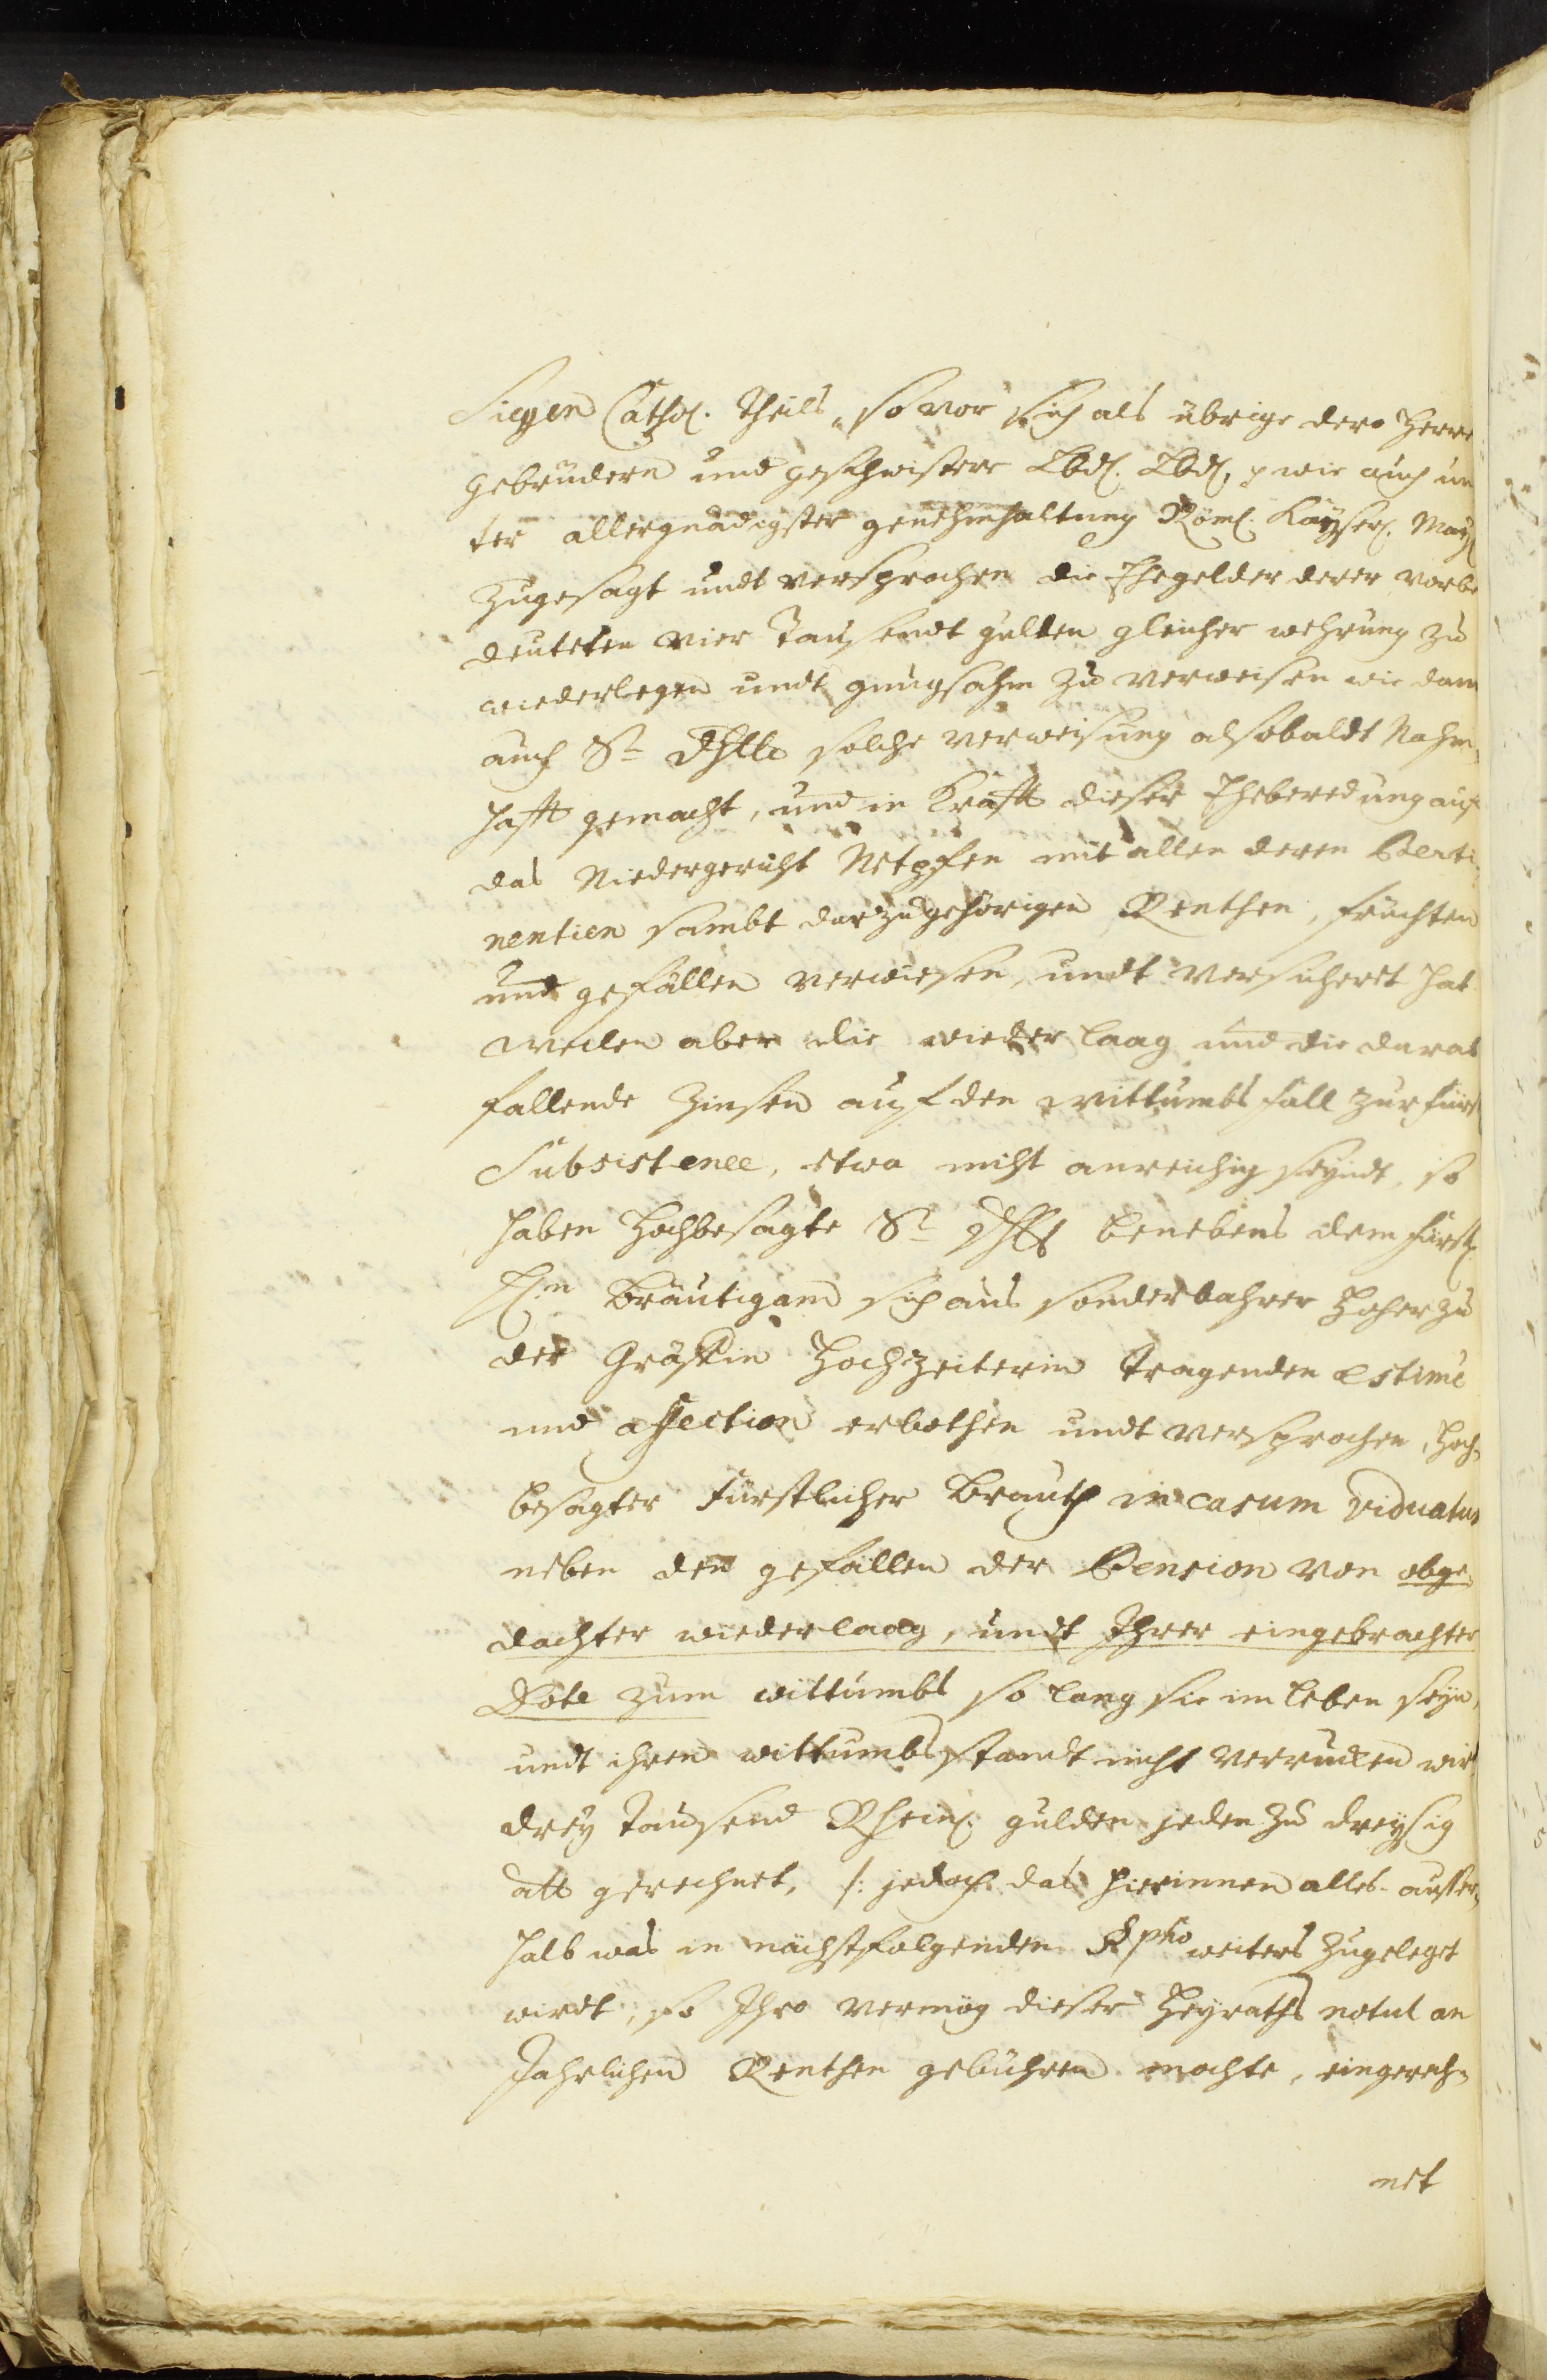 Siegen Cathol. theils, so vor sich als übrige dero Herre
gebrüdern und geschwistere Lbd. Lbd. wie auch un
ter allergnädigster genehmhaltung Röml. Kayserl. May
zugesagt undt versprochen die Ehegelder derer vorbe
deuteten vier Tausendt gulden gleicher wehrung zu
wiederlegen undt gnugsahm zu verweisen wie dann
auch Sr. dhlt solche verweisung alsobaldt Nahm,
hafft gemacht, und in krafft dieser Eheberedung auf
das Niedergericht Netpfen mit allen deren Perti
nentien sambt darzugehörigen Renthen, früchten
und gefällen verwiesen, undt versicheret hat
weilen aber die wiederlaag und die darab
fallende Zinsen auf den wittumbs fall zur fürstl
Subsistence, etwa nicht anreichig seyndt, so
haben Hochbesagte Sr. dhlt benebens dem fürstl.
H.m Bräutigam sich aus sonderbahrer Hoher zu
der Gräffin Hochzeiterin tragenden estime
und affection erbothen undt versprochen, Hoch,
besagter Fürstlicher Brauth in casum viduatus
neben den gefällen der Pension von obge,
dachter wiederlaag, undt Ihrer eingebrachter
Dote zum wittumbs so lang sie im leben seyn,
undt ihren wittumbs standt nicht verrucken wirt
drey Tausend Rheinl. gulden jeden zu dreysig
alb gerechnet, /: jedoch das hierinnen alles ausser,
halb was in nächstfolgenden §pho weiters zugeleget
wirdt, so Ihro vermög dieser Heyraths notul an
Jahrlichen Renthen gebühren mochte, eingerech,
net